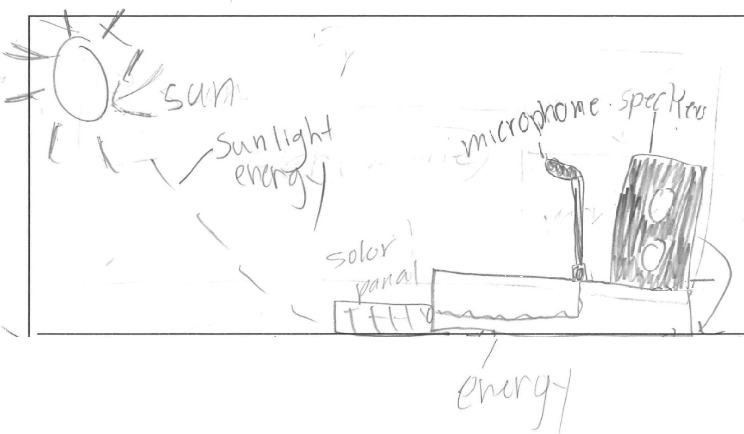 sun
sunlight
energy
microphome
speckers
solor
panal
energy